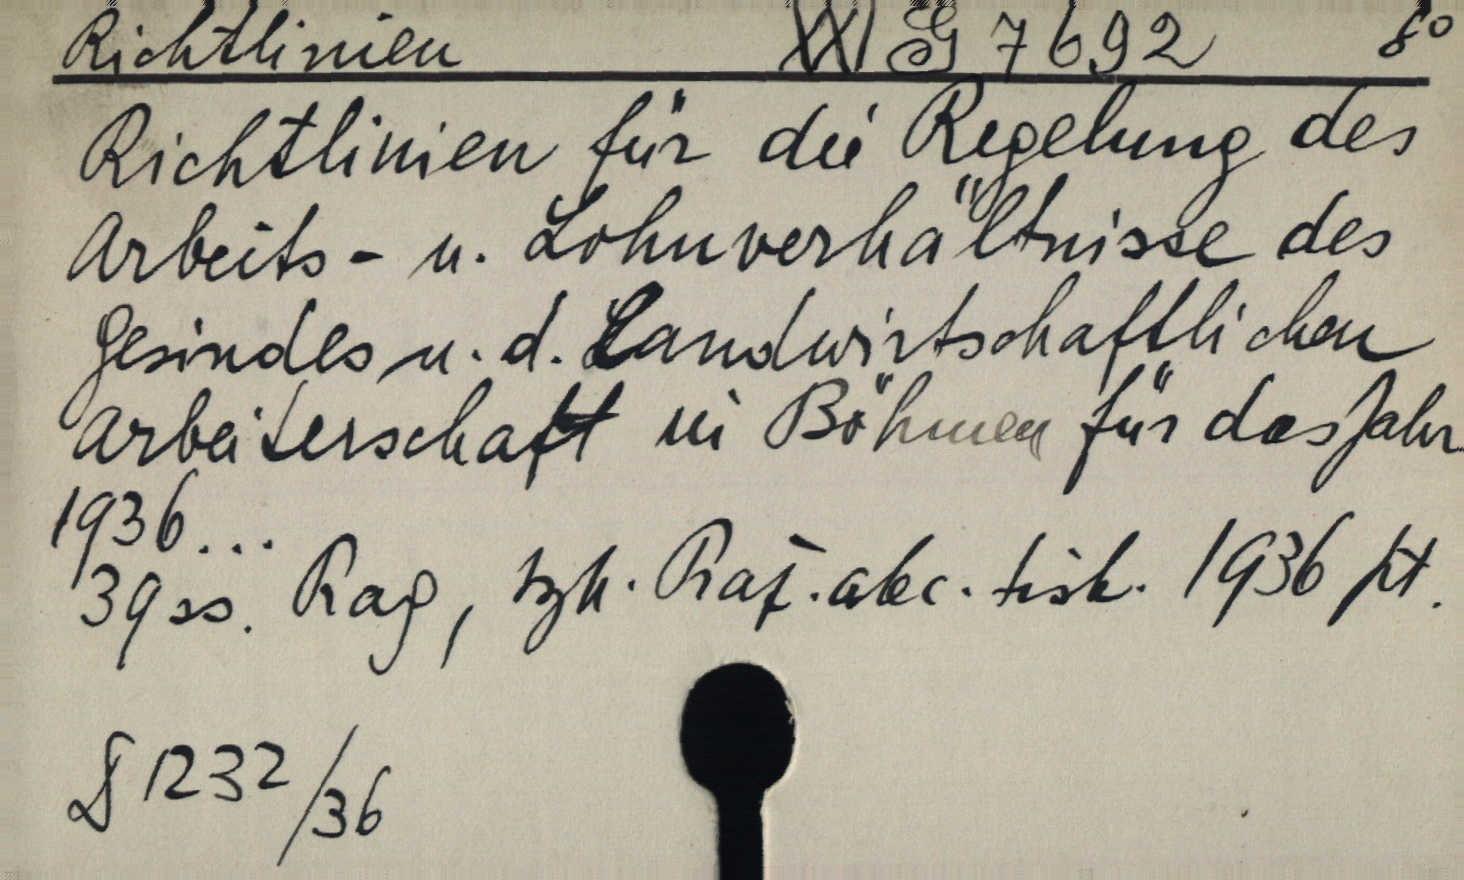 Richtlinien G 7692 8°
Richtlinien für die Regelung des
Arbeits- u. Lohnverhältnisse des
Gesindes u. d. Landwirtschaftlichen
Arbeiterschaft in Böhmen für das Jahr
1936...
39 ss. Rag, 1936
D 1232/36